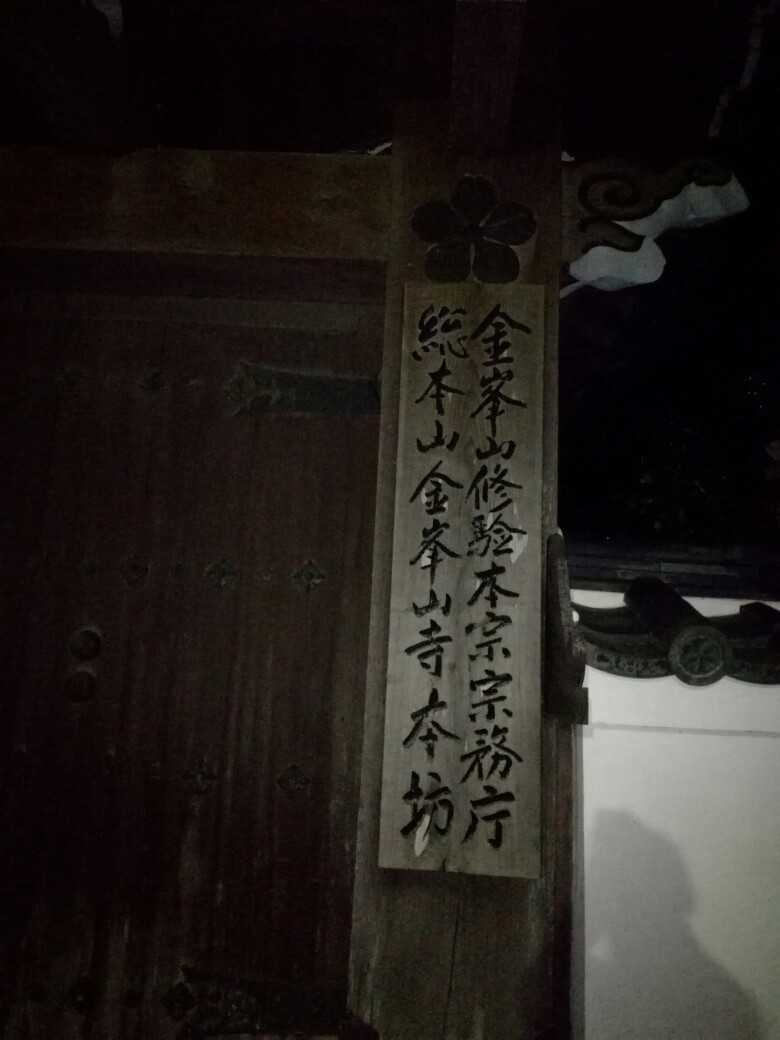 金峯山修験本宗宗務庁
総本山金峯山寺本坊